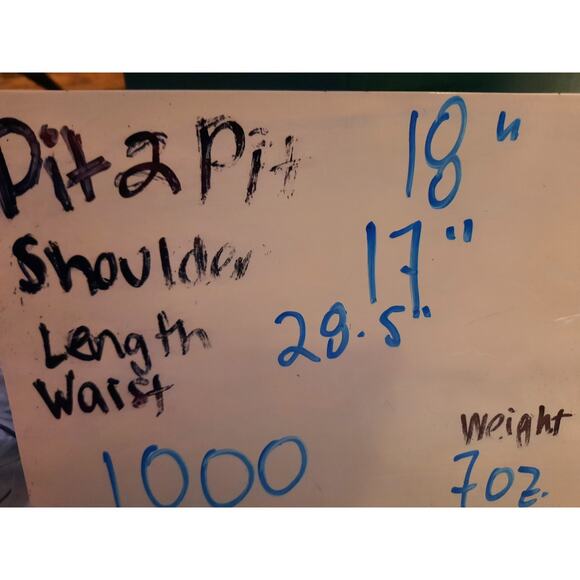 Pit 2 Pit 18"
Shoulder 17"
Length 28.5"
Waist
Weight
1000 7oz.